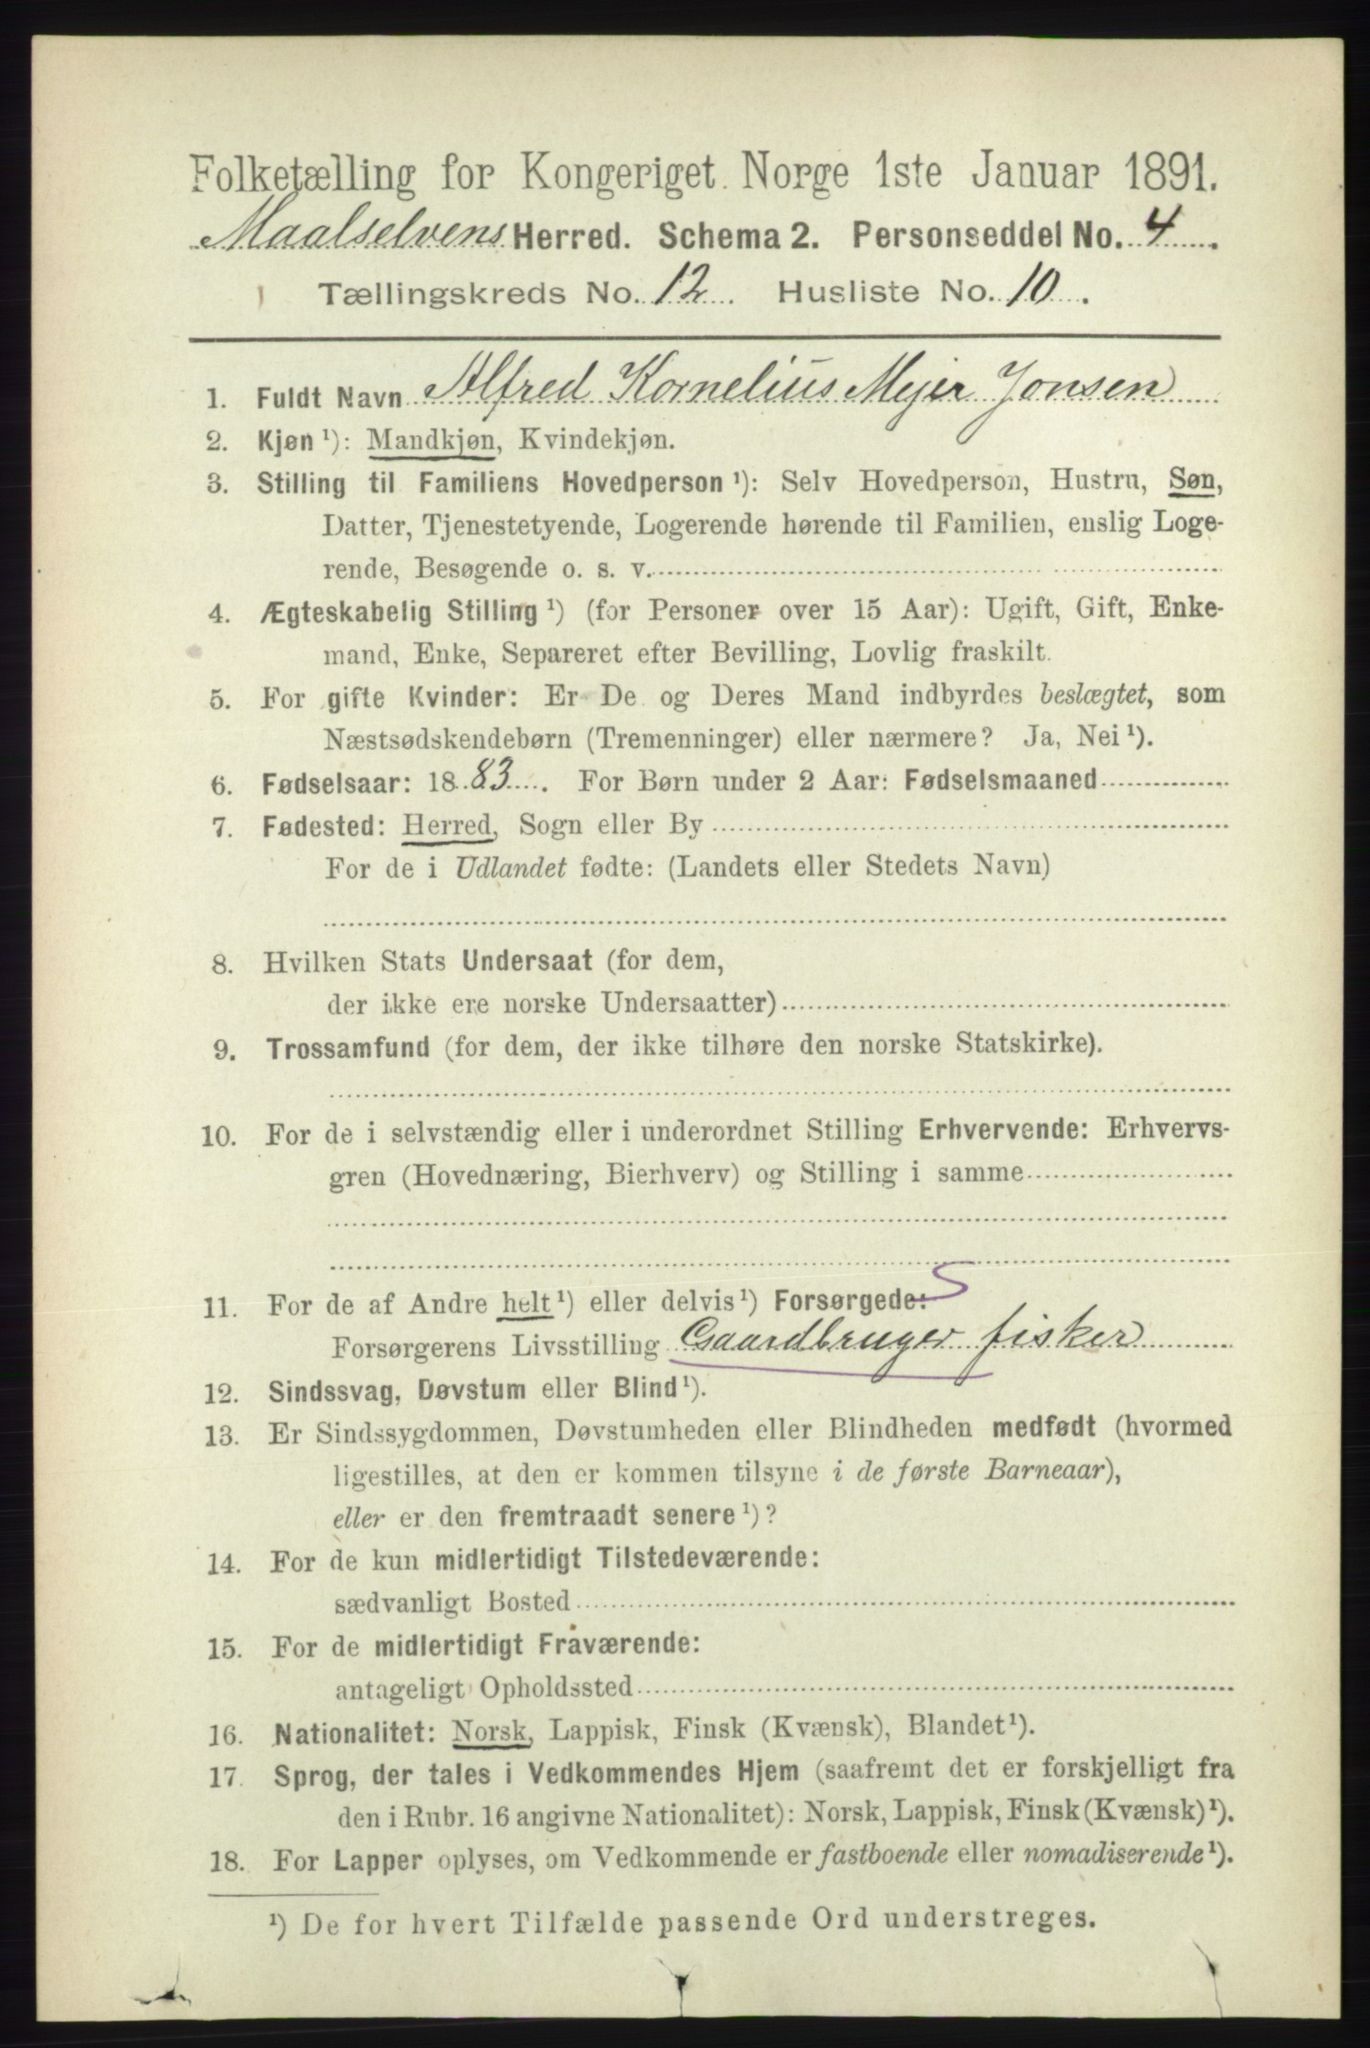 Folketælling for Kongeriget Norge 1ste Januar 1891.
Maalselvens Herred. Schema 2. Personseddel No. 4.
Tællingskreds No. 12. Husliste No. 10.
1. Fuldt Navn Alfred Kornelius Mejer Jonsen
2. Kjøn ¹): Mandkjøn, Kvindekjøn.
3. Stilling til Familiens Hovedperson ¹): Selv Hovedperson, Hustru, Søn,
Datter, Tjenestetyende, Logerende hørende til Familien, enslig Loge-
rende, Besøgende o. s. v.
4. Ægteskabelig Stilling ¹) (for Personer over 15 Aar): Ugift, Gift, Enke-
mand, Enke, Separeret efter Bevilling, Lovlig fraskilt.
5. For gifte Kvinder: Er De og Deres Mand indbyrdes beslægtet, som
Næstsødskendebørn (Tremenninger) eller nærmere? Ja, Nei ¹).
6. Fødselsaar: 1883. For Børn under 2 Aar: Fødselsmaaned
7. Fødested: Herred, Sogn eller By
For de i Udlandet fødte: (Landets eller Stedets Navn)
8. Hvilken Stats Undersaat (for dem,
der ikke ere norske Undersaatter)
9. Trossamfund (for dem, der ikke tilhøre den norske Statskirke).
10. For de i selvstændig eller i underordnet Stilling Erhvervende: Erhvervs-
gren (Hovednæring, Bierhverv) og Stilling i samme
11. For de af Andre helt ¹) eller delvis ¹) Forsørgede: S
Forsørgerens Livsstilling Gaardbruger fisker
12. Sindssvag, Døvstum eller Blind ¹).
13. Er Sindssygdommen, Døvstumheden eller Blindheden medfødt (hvormed
ligestilles, at den er kommen tilsyne i de første Barneaar),
eller er den fremtraadt senere ¹)?
14. For de kun midlertidigt Tilstedeværende:
sædvanligt Bosted
15. For de midlertidigt Fraværende:
antageligt Opholdssted
16. Nationalitet: Norsk, Lappisk, Finsk (Kvænsk), Blandet ¹).
17. Sprog, der tales i Vedkommendes Hjem (saafremt det er forskjelligt fra
den i Rubr. 16 angivne Nationalitet): Norsk, Lappisk, Finsk (Kvænsk) ¹).
18. For Lapper oplyses, om Vedkommende er fastboende eller nomadiserende ¹).
¹) De for hvert Tilfælde passende Ord understreges.